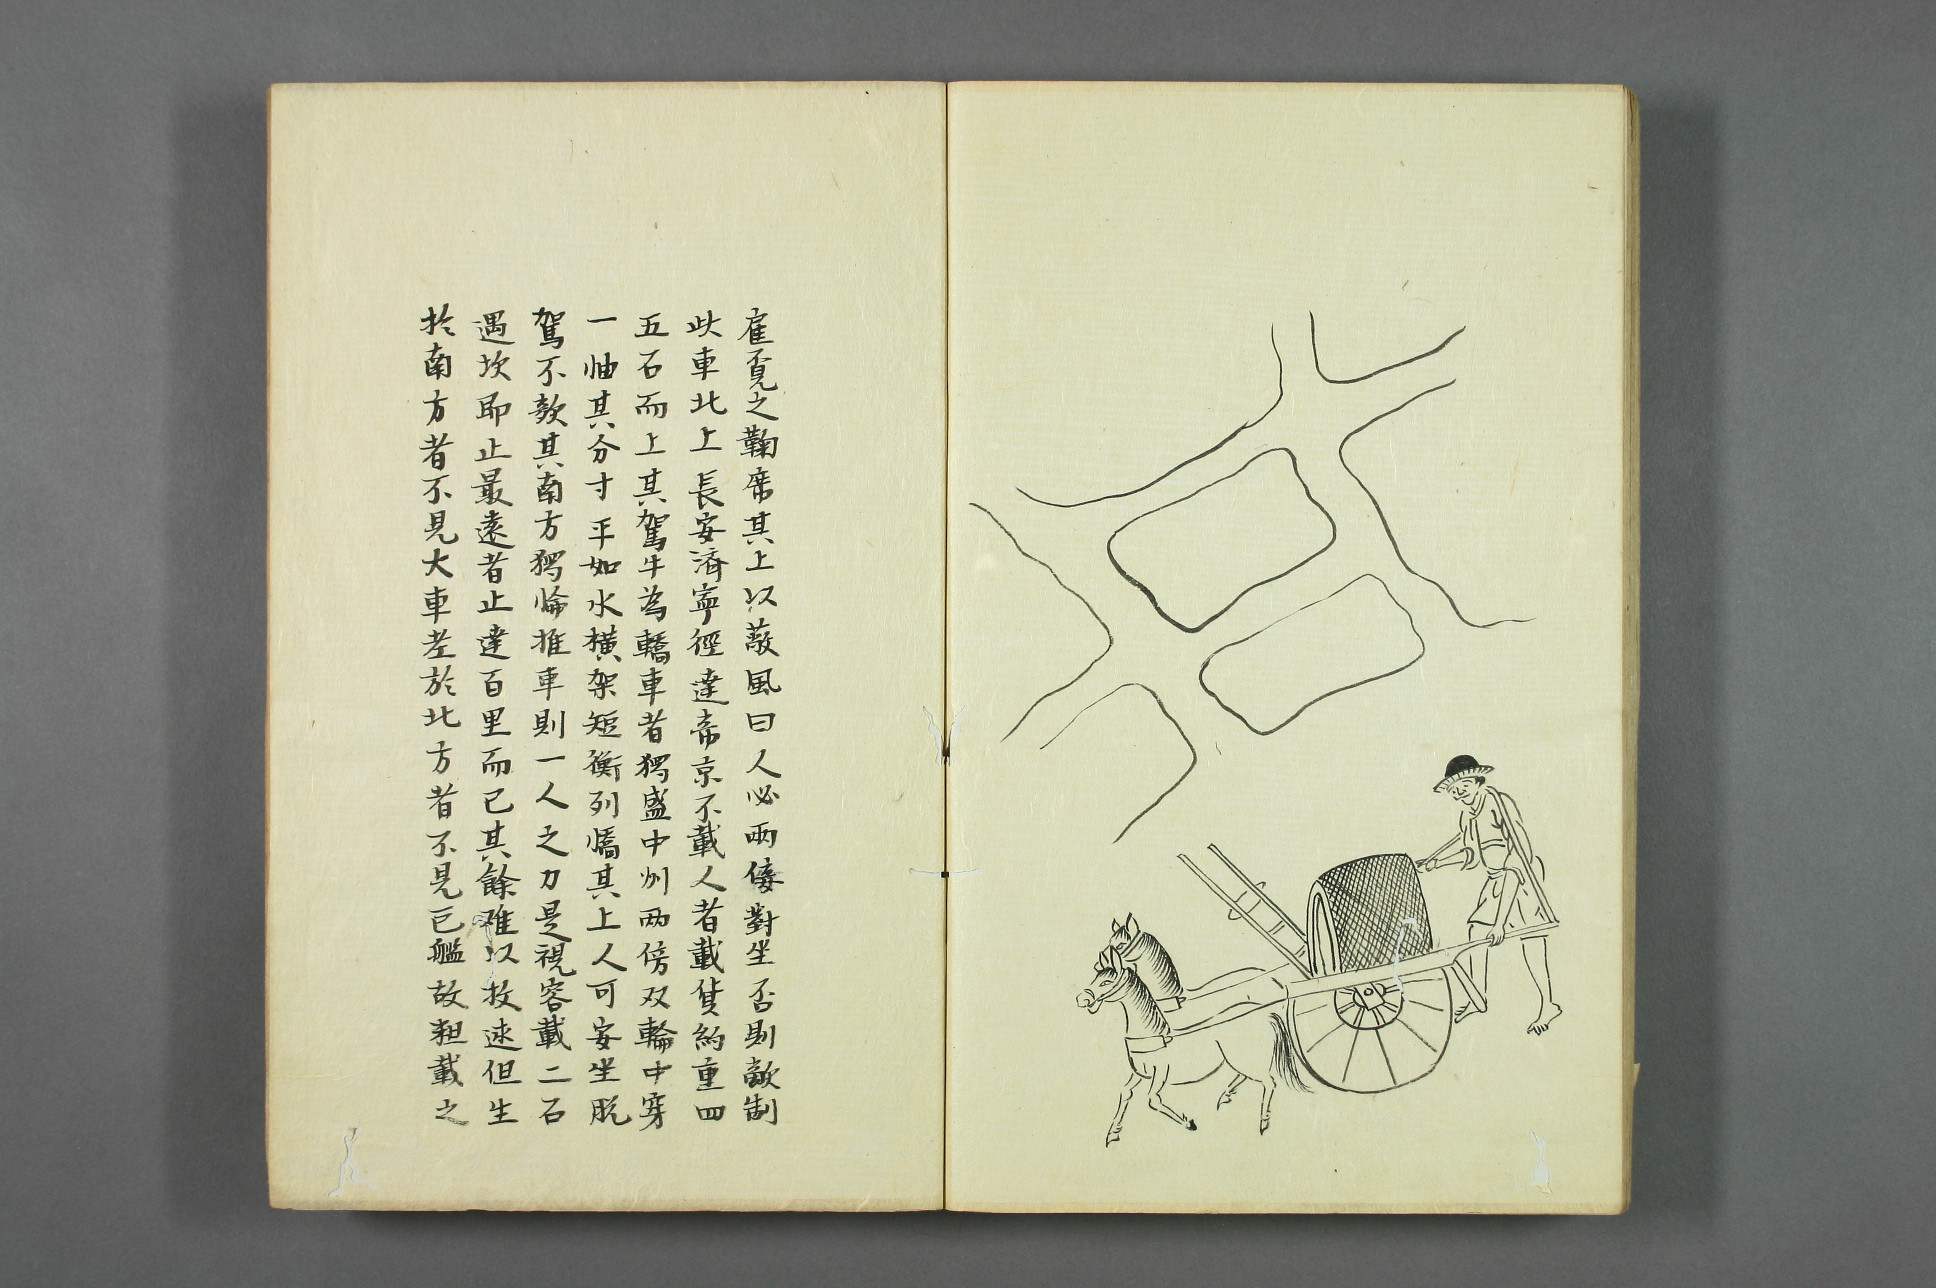 雇覔之鞠席其上以蔽風日人必兩傍對坐否則欹制
此車北上長安濟寧徑達帝京不載人者載貨約重四
五石而上其駕牛為轎車者獨盛中州兩傍双輪中穿
一軸其分寸平如水橫架短衡列轎其上人可安坐脫
駕不欹其南方獨輪推車則一人之力是視容載二石
遇坎即止最遠者止達百里而已其餘难以枚述但生
於南方者不見大車老於北方者不見巨艦故粗載之